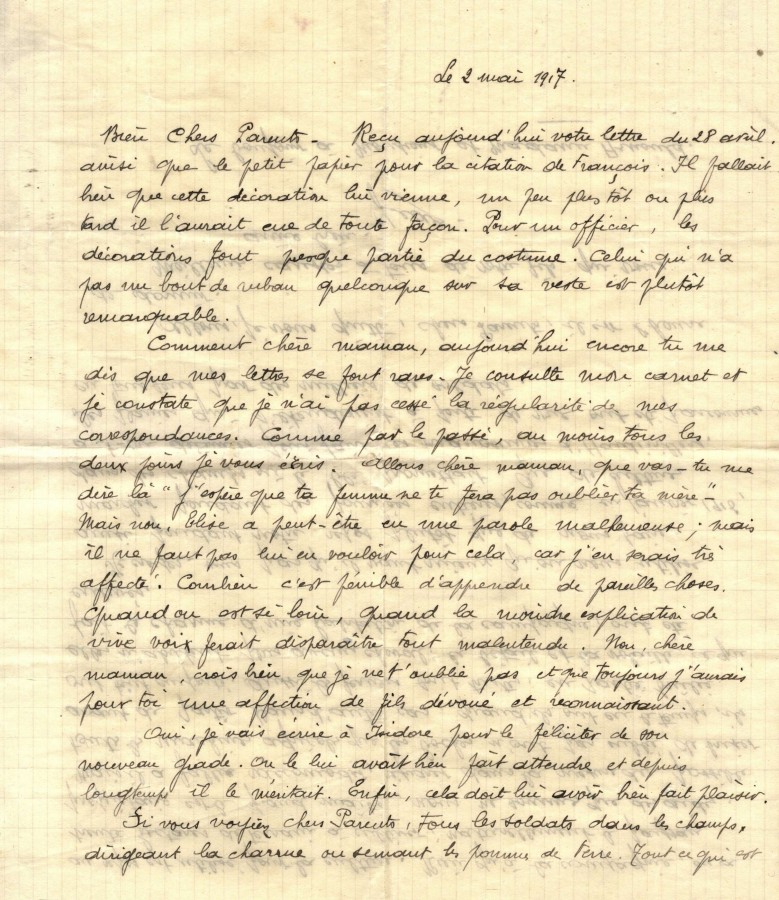 Le 2 mai 1917.
Bien Chers Parents - Reçu aujourd'hui votre lettre du 28 avril.
ainsi que le petit papier pour la citation de François. Il fallait
bien que cette décoration lui vienne, un peu plus tôt ou plus
tard il l'aurait eue de toute façon. Pour un officier, les
décorations font presque partie du costume. Celui qui n'a
pas un bout de ruban quelconque sur sa veste est plutôt
remarquable.
Comment chère maman, aujourd'hui encore tu me
dis que mes lettres se font rares. Je consulte mon carnet et
je constate que je n'ai pas cessé la régularité de mes
correspondances. Comme par le passé, au moins tous les
deux jours je vous écris. Allons chère maman, que vas-tu me
dire là "J'espère que ta femme ne te fera pas oublier ta mère"-
Mais non, Elise a peut-être eu une parole malheureuse ; mais
il ne faut pas lui en vouloir pour cela, car j'en serais très
affecté. Combien c'est pénible d'apprendre de pareilles choses.
Quand on est si loin, quand la moindre explication de
vive voix ferait disparaître tout malentendu. Non, chère
maman, crois bien que je ne t'oublie pas et que toujours j'aurais
pour toi une affection de fils dévoué et reconnaissant.
Oui, je vais écrire à Isidore pour le féliciter de son
nouveau grade. On le lui avait bien fait attendre et depuis
longtemps il le méritait. Enfin, cela doit lui avoir bien fait plaisir.
Si vous voyiez chers Parents, tous les soldats dans les champs,
dirigeant la charrue ou semant les pomme de terre. Tout ce qui est